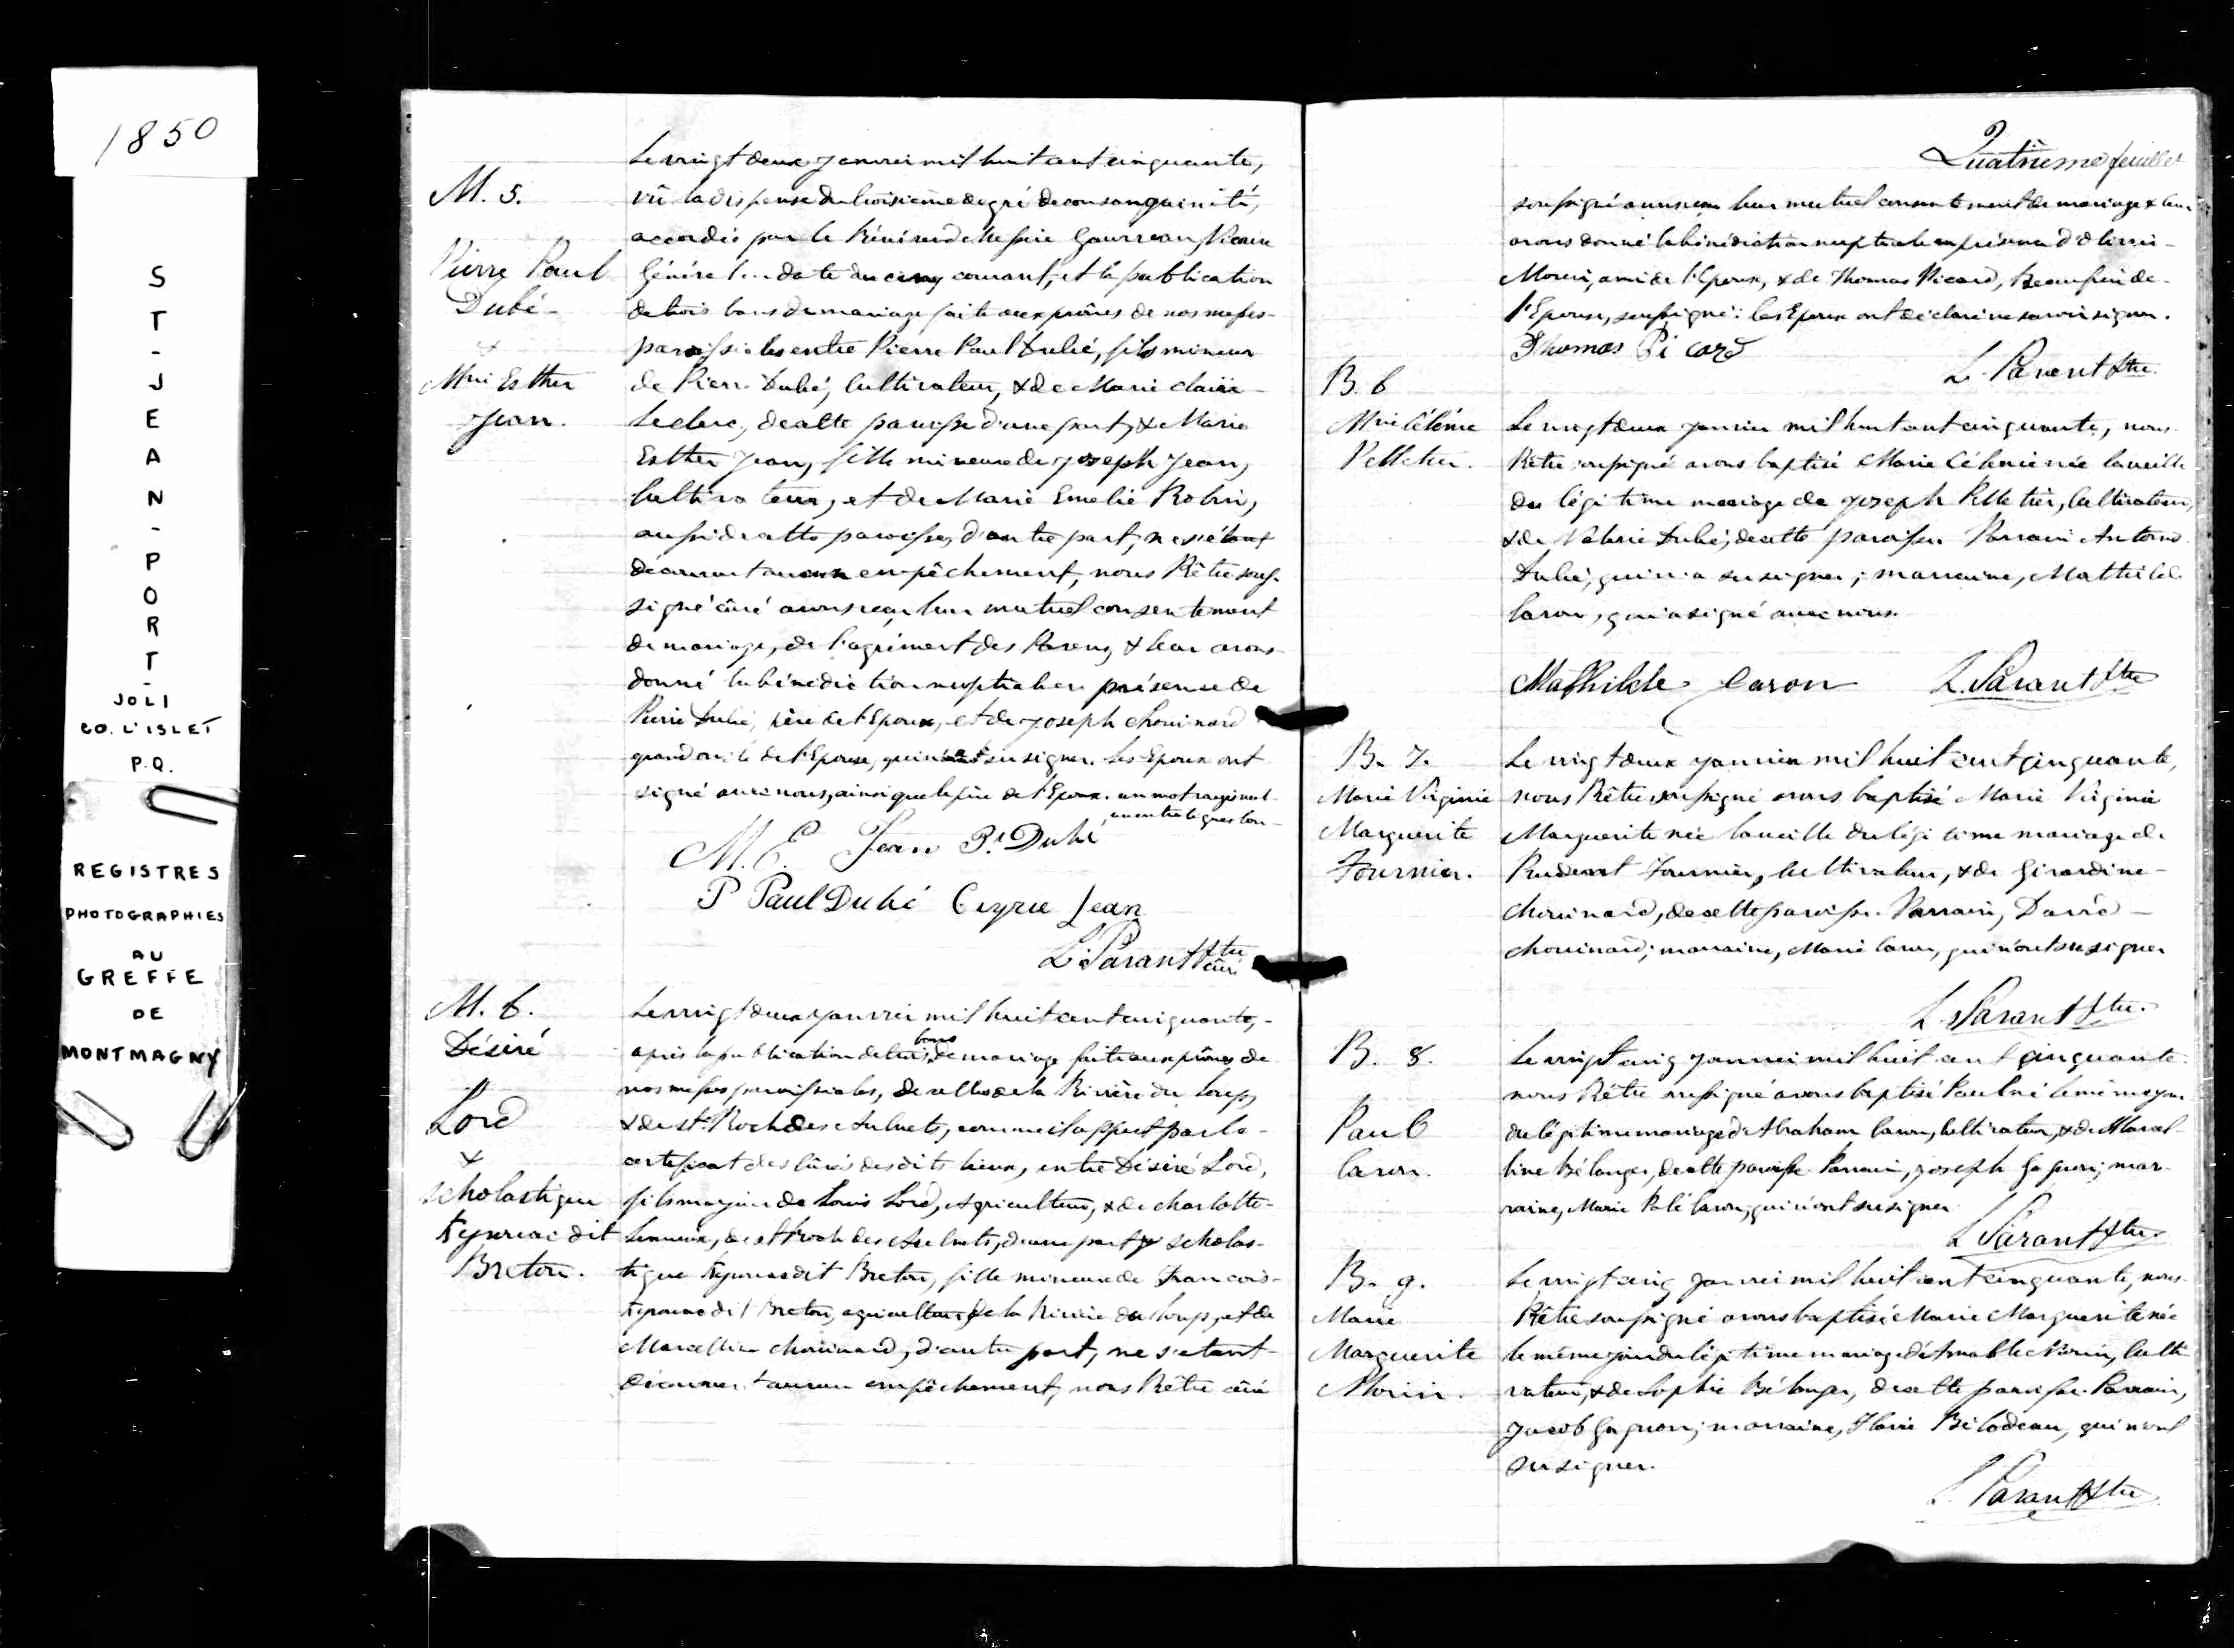 1850
ST-JEAN-PORT-
JOLI
CO. L'ISLET
P.Q.
REGISTRES
PHOTOGRAPHIES
AU
GREFFE
DE
MONTMAGNY
M. 5.
Pierre Paul
Dubé
&
Mrie Esther
Jean.
Le vingt deux janvier mil huit cent cinquante,
vû la dispense du troisième degré de consanguinité,
accordée par le Révérend Messire Gauvreau, Vicaire
Général en date du cinq courant, et la publication
de trois bans de mariage faite aux prônes de nos messes
paroissiales entre Pierre Paul Dubé, fils mineur
de Pierre Dubé, Cultivateur, & de Marie Claire
Leclerc, de cette paroisse d'une part, & Marie
Esther Jean, fille mineure de Joseph Jean,
Cultivateur, et de Marie Emelie Robin,
aussi de cette paroisse, d'autre part, ne s'étant
découvert aucun empêchement, nous Prêtre sous-
signé curé avons reçu leur mutuel consentement
de mariage, de l'agrément des Parens, & leur avons
donné la bénédiction nuptiale en présence de
Pierre Dubé, père de l'Epoux, et de Joseph Chouinard
grand oncle de l'Epouse, qui n'a su signer. Les Epoux ont
signé avec nous, ainsi que le père de l'Epoux. un mot rayé nul
un entre lignes bon
M. E. Jean P. Dubé
P Paul Dubé Cyprie Jean
L. Parant Ptre
curé
M. 6.
Désiré
Lord
&
Scholastique
dit
Breton.
Le vingt deux janvier mil huit cent cinquante,
après la publication de trois bans de mariage faite aux prônes de
nos messes paroissiales, de celles de la Rivière du Loup,
& de St. Roch des Aulnets, comme il appert par le
certificat des Curés des dits lieux, entre Désiré Lord,
fils majeur de Louis Lord, Agriculteur, & de Charlotte
de St Roch des Aulnets, d'une part, & Scholas-
tique dit Breton, fille mineure de François
dit Breton, agriculteur de la Rivière du Loup, et de
Marcelline Chouinard, d'autre part, ne s'étant
découvert aucun empêchement, nous Prêtre curé
Quatrième feuillet
soussigné avons reçu leur mutuel consentement de mariage & leur
avons donné la bénédiction nuptiale en présence d'Olivier
Morin, ami de l'Epoux, & de Thomas Picard, Beaufrère de
l'Epouse, soussigné: les Epoux ont déclaré ne savoir signer.
Thomas Picard
L. Parant Ptre.
B. 6
Mrie Célénie
Pelletier.
Le vingt deux janvier mil huit cent cinquante, nous
Prêtre soussigné avons baptisé Marie Célénie née la veille
du légitime mariage de Joseph Pelletier, Cultivateur,
& de Valérie Dubé, de cette paroisse. Parrain Antoine
Dubé, qui n'a su signer; marraine, Mathilde
Caron, qui a signé avec nous.
Mathilde Caron L. Parant Ptre
B. 7.
Marie Virginie
Marguerite
Fournier.
Le vingt deux janvier mil huit cent cinquante,
nous Prêtre soussigné avons baptisé Marie Virginie
Marguerite née la veille du légitime mariage de
Prudent Fournier, Cultivateur, & de Girardine
Chouinard, de cette paroisse. Parrain, David
Chouinard; marraine, Marie Caron, qui n'ont su signer
L. Parant Ptre.
B. 8.
Paul
Caron.
Le vingt cinq janvier mil huit cent cinquante
nous Prêtre soussigné avons baptisé Paul né le même jour
du légitime mariage de Abraham Caron, Cultivateur, & de Marcel-
line Bélanger, de cette paroisse. Parrain, Joseph Gagnon; mar-
raine, Marie Caron, qui n'ont su signer
L. Parant Ptre
B. 9.
Marie
Marguerite
Morin.
Le vingt cinq janvier mil huit cent cinquante, nous
Prêtre soussigné avons baptisé Marie Marguerite née
le même jour du légitime mariage d'Amable Morin, Culti-
vateur, & de Sophie Bélanger, de cette paroisse. Parrain,
Jacob Gagnon; marraine, Flavie Bilodeau, qui n'ont
su signer.
L. Parant Ptre